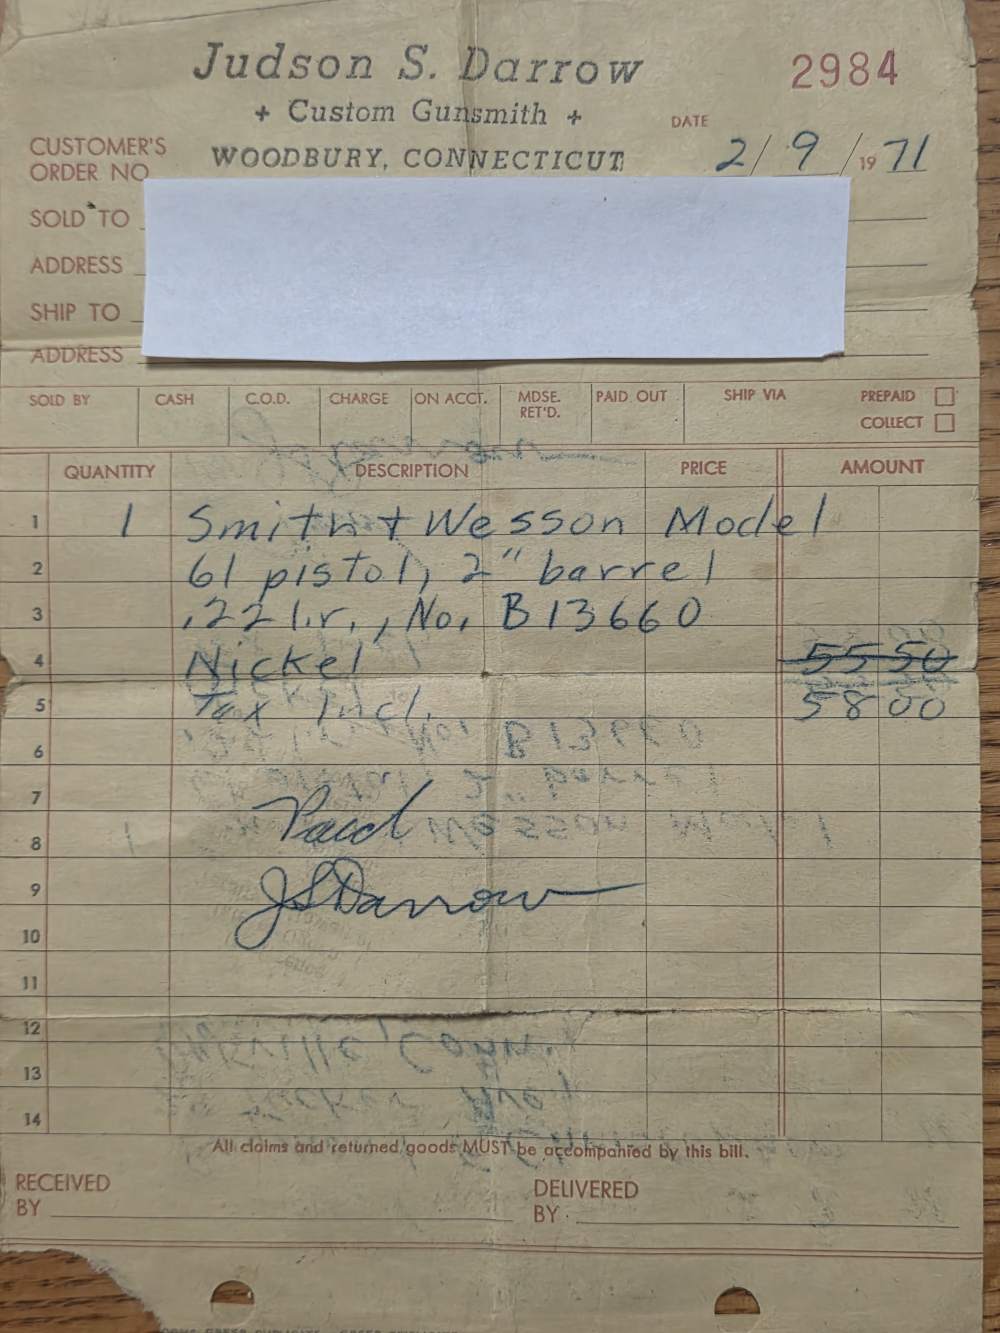 Judson S. Darrow
2984
+ Custom Gunsmith +
DATE
WOODBURY, CONNECTICUT
2/9/1971
CUSTOMER'S
ORDER NO
SOLD TO
ADDRESS
SHIP TO
ADDRESS
SOLD BY CASH C.O.D. CHARGE ON ACCT. MDSE. RET'D. PAID OUT SHIP VIA PREPAID
COLLECT
QUANTITY DESCRIPTION PRICE AMOUNT
1 1 Smith + Wesson Model
2 61 pistol, 2" barrel
3 .22 l.r., No. B13660
4 Nickel 55 50
5 Tax Incl. 58 00
6
7
8 Paid
9 JSDarrow
10
11
12
13
14
All claims and returned goods MUST be accompanied by this bill.
RECEIVED
BY
DELIVERED
BY